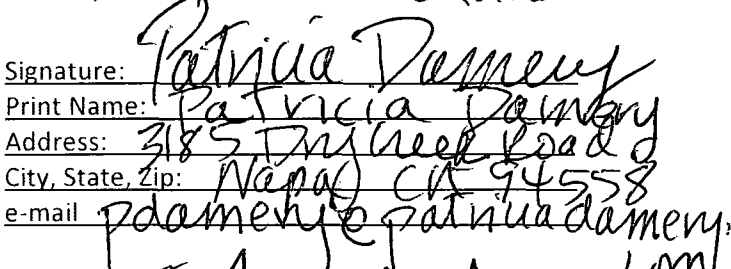 Signature: Patricia Damery
Print Name: Patricia Damery
Address: 3185 Dry Creek Road
City, State, Zip: Napa CA 94558
e-mail pdamery@patriciadamery.
com